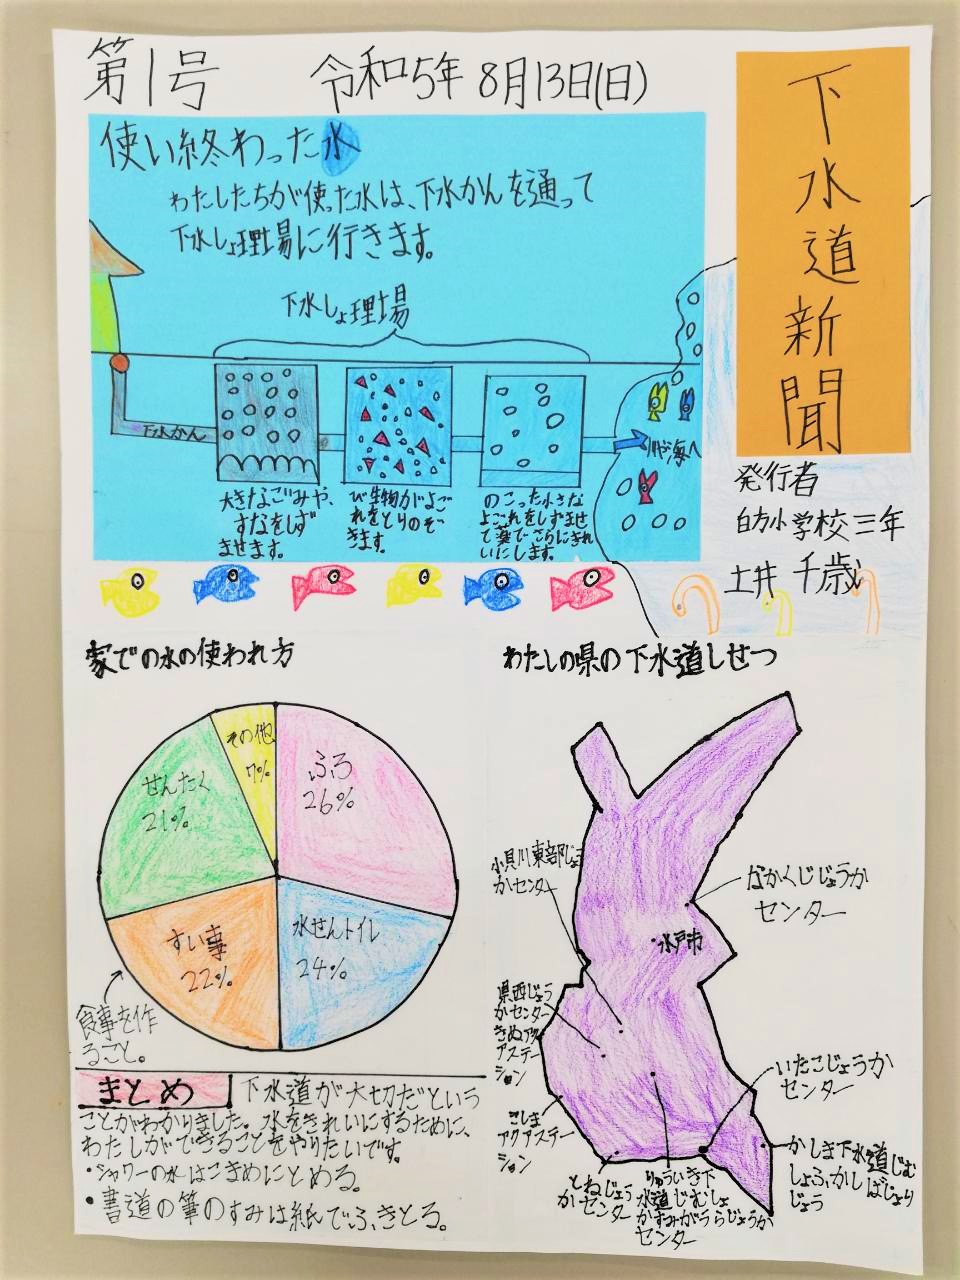 第1号
令和5年 8月13日(日)
下水道新聞
発行者
白方小学校三年
土井 千歳
使い終わった水
わたしたちが使った水は、下水かんを通って
下水しょ理場に行きます。
下水しょ理場
下水かん
川や海へ
大きなごみや、
すなをしず
ませます。
び生物がよご
れをとりのぞ
きます。
のこった小さな
よごれをしずませ
て薬でさらにきれ
いにします。
家での水の使われ方
ふろ
26%
水せんトイレ
24%
すい事
22%
せんたく
21%
その他
7%
食事を作
ること。
わたしの県の下水道しせつ
小貝川東部じょう
かセンター
なかくじじょうか
センター
水戸市
県西じょう
かセンター
きぬアク
アステー
ション
さしま
アクアステー
ション
とねじょう
かセンター
りゅういき下
水道じむしょ
かすみがうらじょうか
センター
いたこじょうか
センター
かしま下水道じむ
しょふかしばしょり
じょう
まとめ
下水道が大切だという
ことがわかりました。水をきれいにするために、
わたしができることをやりたいです。
・シャワーの水はこまめにとめる。
・書道の筆のすみは紙でふきとる。